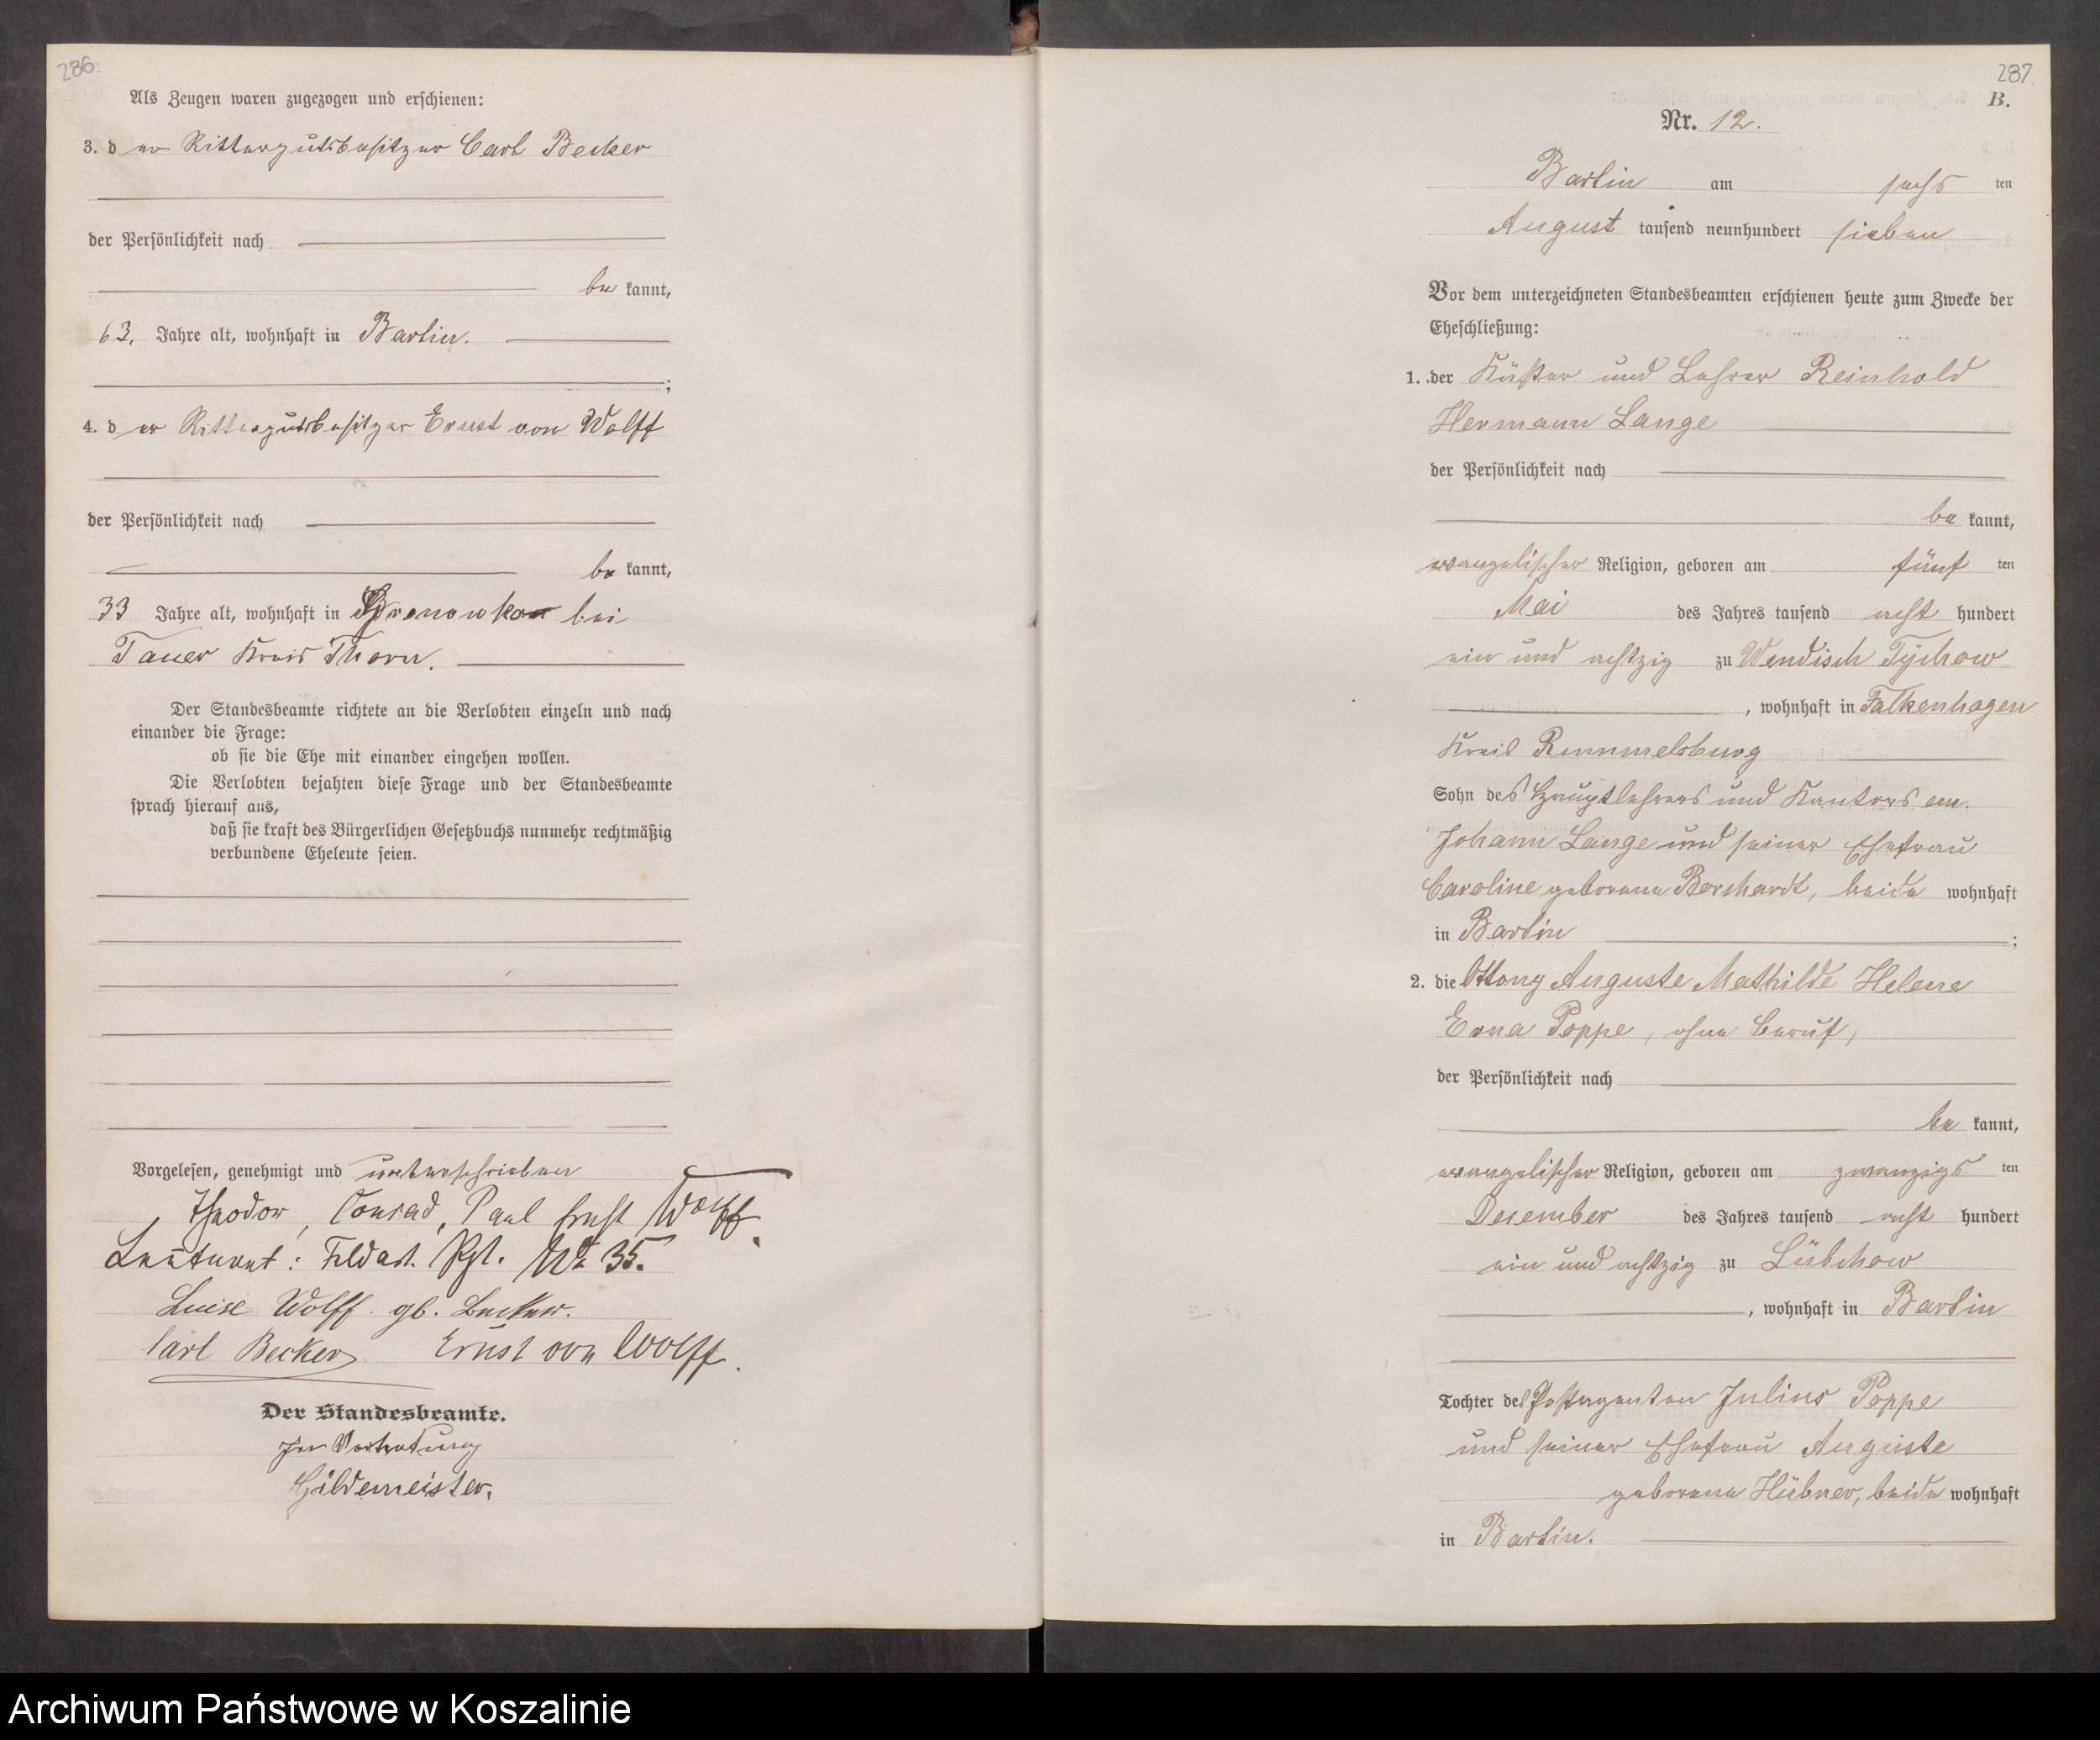 286.
Als Zeugen waren zugezogen und erschienen:
3. der Rittergutsbesitzer Carl Becker
der Persönlichkeit nach
be kannt,
63. Jahre alt, wohnhaft in Bartin.
;
4. der Rittergutsbesitzer Ernst von Wolff
der Persönlichkeit nach
be kannt,
33 Jahre alt, wohnhaft in bei
Tauer Kreis Thorn.
Der Standesbeamte richtete an die Verlobten einzeln und nach
einander die Frage:
ob sie die Ehe mit einander eingehen wollen.
Die Verlobten bejahten diese Frage und der Standesbeamte
sprach hierauf aus,
daß sie kraft des Bürgerlichen Gesetzbuchs nunmehr rechtmäßig
verbundene Eheleute seien.
Vorgelesen, genehmigt und unterschrieben
Theodor, Conrad, Paul Ernst Wolff.
Leutnant: Feldart. Rgt. No 35.
Luise Wolff gb. Becker.
Carl Becker Ernst von Wolff.
Der Standesbeamte.
In Vertretung
Gildemeister.
287.
B.
Nr. 12.
Bartin am sechs ten
August tausend neunhundert sieben
Vor dem unterzeichneten Standesbeamten erschienen heute zum Zwecke der
Eheschließung:
1. der Küster und Lehrer Reinhold
Hermann Lange
der Persönlichkeit nach
be kannt,
evangelischer Religion, geboren am fünf ten
Mai des Jahres tausend acht hundert
ein und achtzig zu Wendisch Tychow
, wohnhaft in Falkenhagen
Kreis Rummelsburg
Sohn des Hauptlehrers und Kantors em.
Johann Lange und seiner Ehefrau
Caroline geborene Borchardt, beide wohnhaft
in Bartin ;
2. die Ottony Auguste Mathilde Helene
Erna Poppe, ohne Beruf,
der Persönlichkeit nach
be kannt,
evangelischer Religion, geboren am zwanzigs ten
Dezember des Jahres tausend acht hundert
ein und achtzig zu Lübchow
, wohnhaft in Bartin
Tochter des Postagenten Julius Poppe
und seiner Ehefrau Auguste
geborene Hübner, beide wohnhaft
in Bartin.
Archiwum Państwowe w Koszalinie